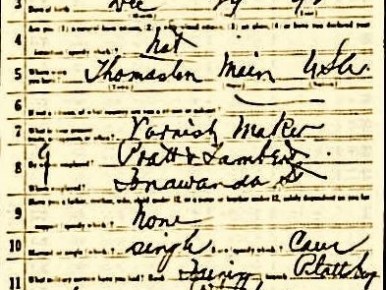 3 Date of birth Dec 29 92
(Month) (Day)
Are you (1) a natural-born citizen, (2) a naturalized citizen, (3) an alien, (4) or have you declared your
4 intention (specify which)? Nat
5 Where were you born? Thomaston Main USA
(Town) (State) (Nation)
6 If not a citizen, of what country are you a citizen or subject?
7 What is your present trade, occupation, or office? Varnish Maker
8 By whom employed? Pratt & Lambert
Where employed? Tonawanda St
Have you a father, mother, wife, child under 12, or a sister or brother under 12, solely dependent on you for
9 support (specify which)? none
10 Married or single (which)? single Race (specify which)? Cauc
11 What military service have you had? Rank branch Plattsburg